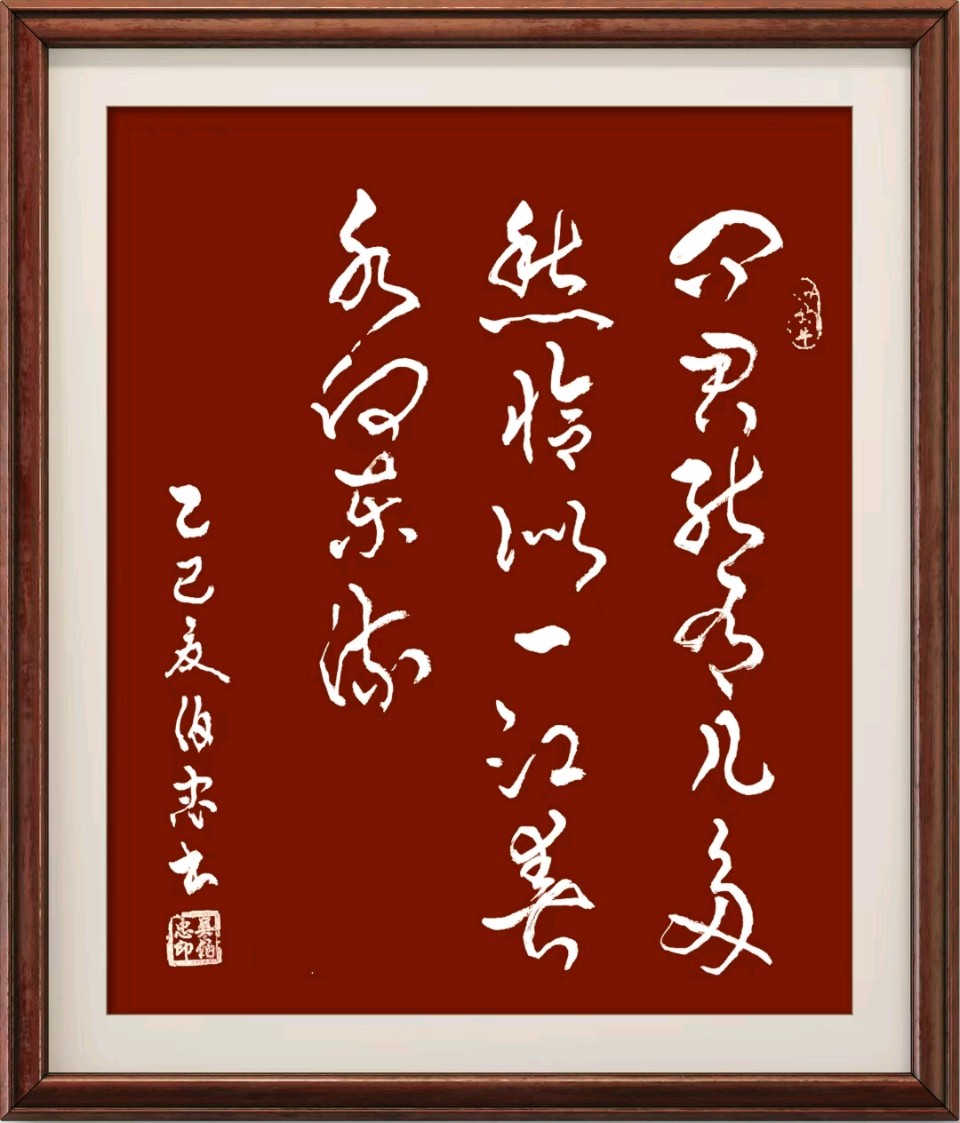 问君能有几多
愁恰似一江春
水向东流
乙巳夏伯忠书
吴伯忠印